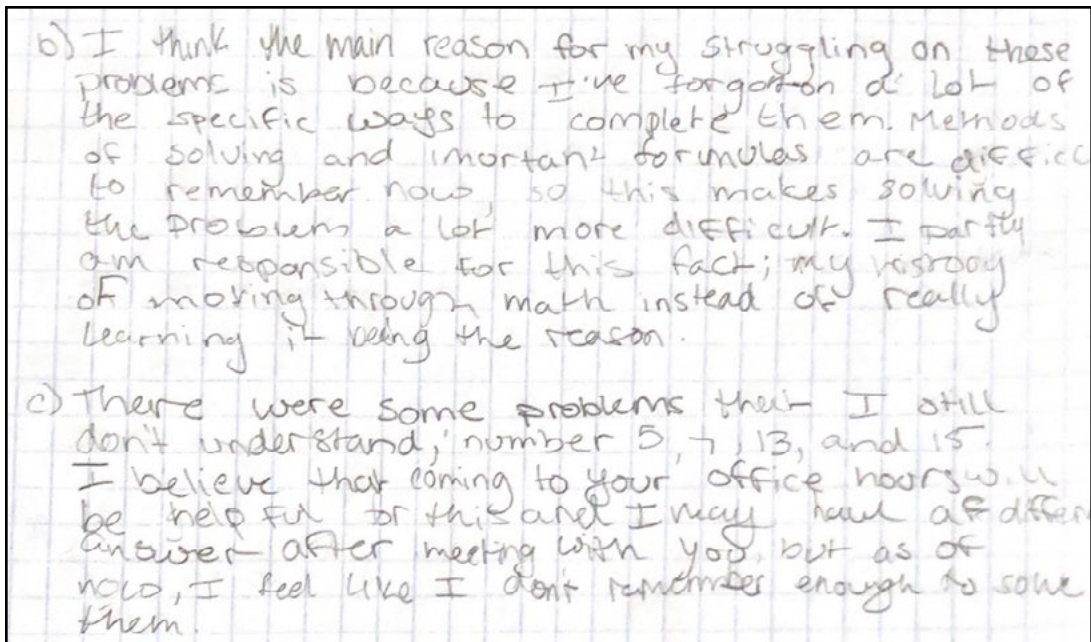 b) I think the main reason for my struggling on these
problems is because I've forgotton a lot of
the specific ways to complete them. Methods
of solving and imortant formulas are difficu
to remember now, so this makes solving
the problem a lot more difficult. I partly
am responsible for this fact; my
of moving through math instead of really
learning it being the reason.
c) There were some problems that I still
don't understand; number 5, 7, 13, and 15.
I believe that coming to your office hours will
be helpful for this and I may have a differen
answer after meeting with you, but as of
now, I feel like I don't remember enough to solve
them.